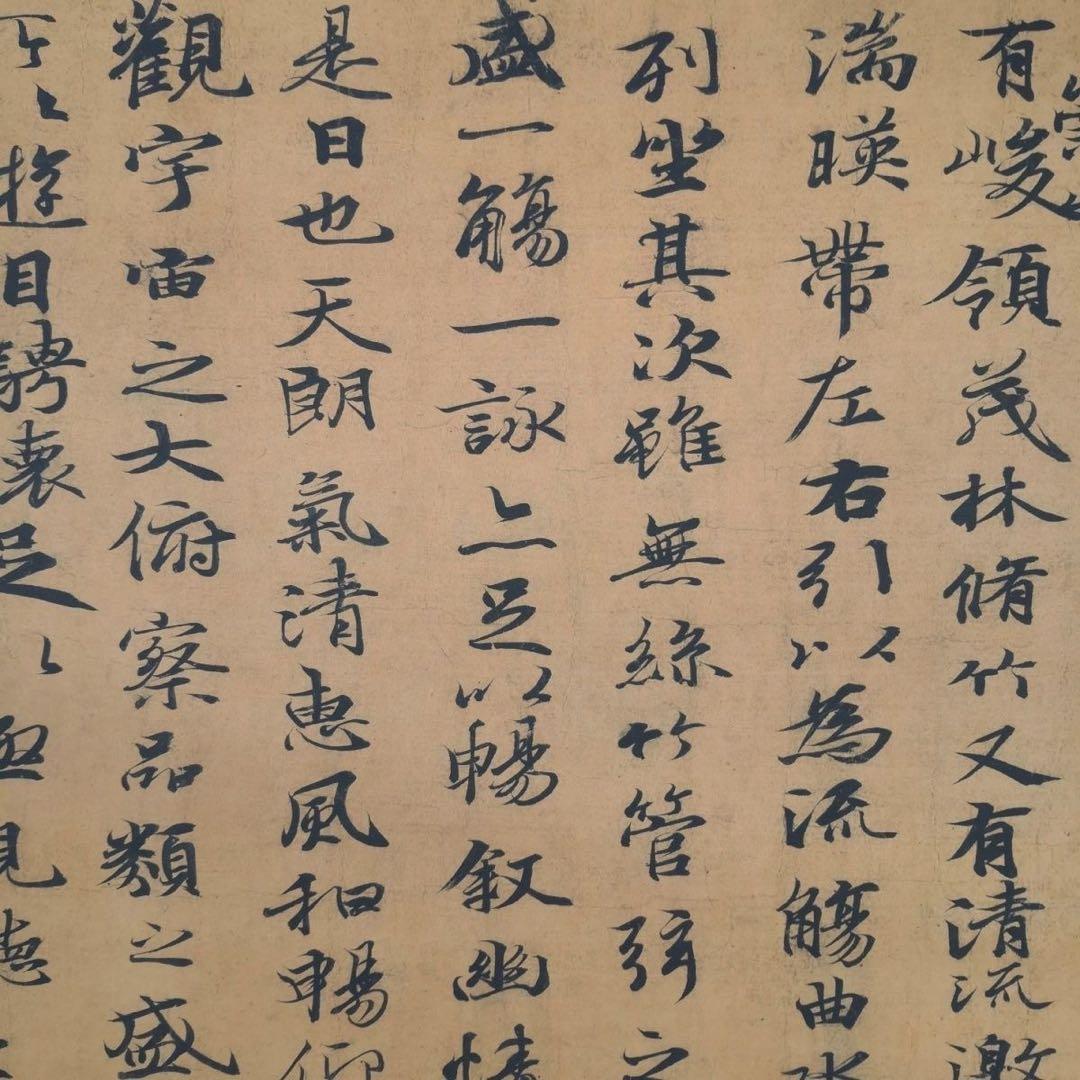 有峻領茂林脩竹又有清流激
崇山
湍暎帶左右引以為流觴曲水
列坐其次雖無絲竹管弦之
盛一觴一詠亦足以暢叙幽情
是日也天朗氣清惠風和暢仰
觀宇宙之大俯察品類之盛
所以遊目騁懷足以極視聽